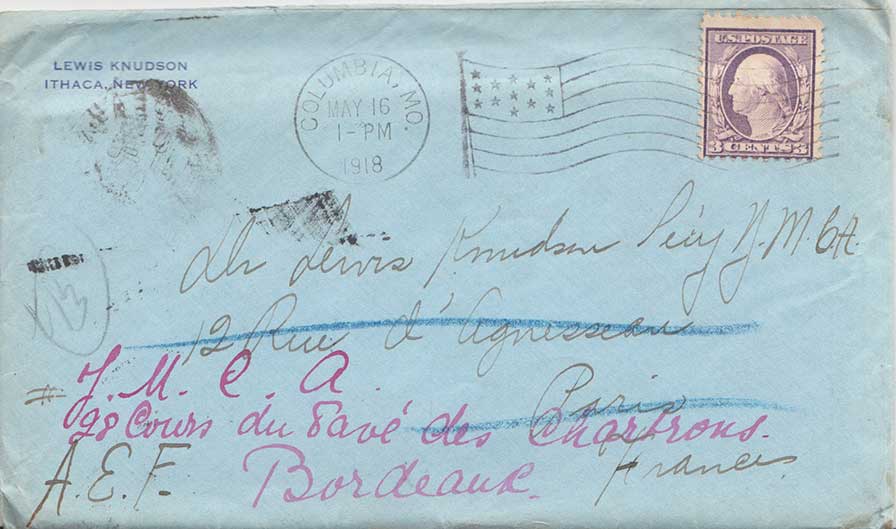 LEWIS KNUDSON
ITHACA, NEW YORK
COLUMBIA, MO.
MAY 16
1-PM
1918
U.S. POSTAGE
3 CENTS 3
Lewis Knudson Y.M.C.A.
12 Rue d'Aguesseau
Paris
France
13
# Y. M. C. A.
28 Cours du Pavé des Chartrons.
A.E.F. Bordeaux.